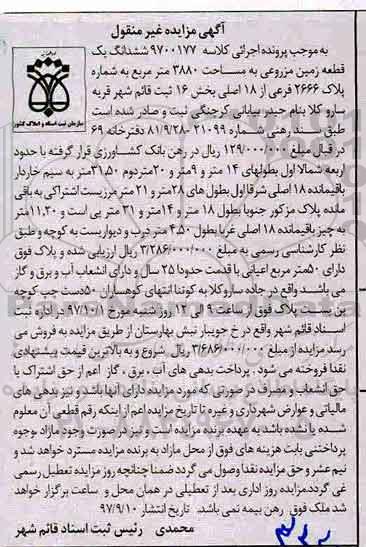 آگهی مزایده غیر منقول
به موجب پرونده اجرائی کلاسه ۹۷۰۰۱۷۷ ششدانگ یک
قطعه زمین مزروعی به مساحت ۳۸۸۰ متر مربع به شماره
پلاک ۲۶۶۶ فرعی از ۱۸ اصلی بخش ۱۶ ثبت قائم شهر قریه
سارو کلا بنام حیدر بیابانی کرچنگی ثبت و صادر شده است
طبق سند رهنی شماره ۲۱۰۹۹ -۸۱/۹/۲۸ دفترخانه ۶۹
در قبال مبلغ ۱۲۹/۰۰۰/۰۰۰ ریال در رهن بانک کشاورزی قرار گرفته با حدود
اربعه شمالا اول بطولهای ۱۴ متر و ۹متر و ۲۰متر دوم ۳۱،۵۰متر به سیم خاردار
باقیمانده ۱۸ اصلی شرقا اول بطول های ۲۸متر و ۲۱ متر مرزیست اشتراکی به باقی
مانده پلاک مزکور جنوبا بطول ۱۸ متر و ۱۴متر و ۳۱ متر پی است و ۱۱،۳۰متر
به چیز باقیمانده ۱۸ اصلی غربا بطول ۴،۵۰ متر درب و دیواریست به کوچه و طبق
نظر کارشناسی رسمی به مبلغ ۳/۲۸۶/۰۰۰/۰۰۰ ریال ارزیابی شده و پلاک فوق
دارای ۵۰متر مربع اعیانی با قدمت حدودا ۲۵ سال و دارای انشعاب آب و برق و گاز
می باشد واقع در جاده ساروکلا به کوتنا انتهای کوهساران ۵۰دست چپ کوچه
بن بست پلاک فوق از ساعت ۹ الی ۱۲ روز شنبه مورخ ۹۷/۱۰/۱ در اداره ثبت
اسناد قائم شهر واقع در خ جویبار نبش بهارستان از طریق مزایده به فروش می
رسد مزایده از مبلغ ۳/۶۸۶/۰۰۰/۰۰۰ ریال شروع و به بالاترین قیمت پیشنهادی
نقدا فروخته می شود . پرداخت بدهی های آب ، برق ، گاز اعم از حق اشتراک یا
حق انشعاب و مصرف در صورتی که مورد مزایده دارای آنها باشد و نیز بدهی های
مالیاتی و عوارض شهرداری و غیره تا تاریخ مزایده اعم از اینکه رقم قطعی آن معلوم
شده یا نشده باشد به عهده برنده مزایده است و نیز در صورت وجود مازاد بوجوه
پرداختی بابت هزینه های فوق از محل مازاد به برنده مزایده مسترد خواهد شد و
نیم عشر و حق مزایده نقدا وصول می گردد ضمنا چنانچه روز مزایده تعطیل رسمی
غی گردد،مزایده روز اداری بعد از تعطیلی در همان محل و ساعت برگزار خواهد
شد ملک فوق رهن بیمه نمی باشد. تاریخ انتشار ۹۷/۹/۱۰
محمدی رئیس ثبت اسناد قائم شهر
سازمان ثبت اسناد و املاک کشور